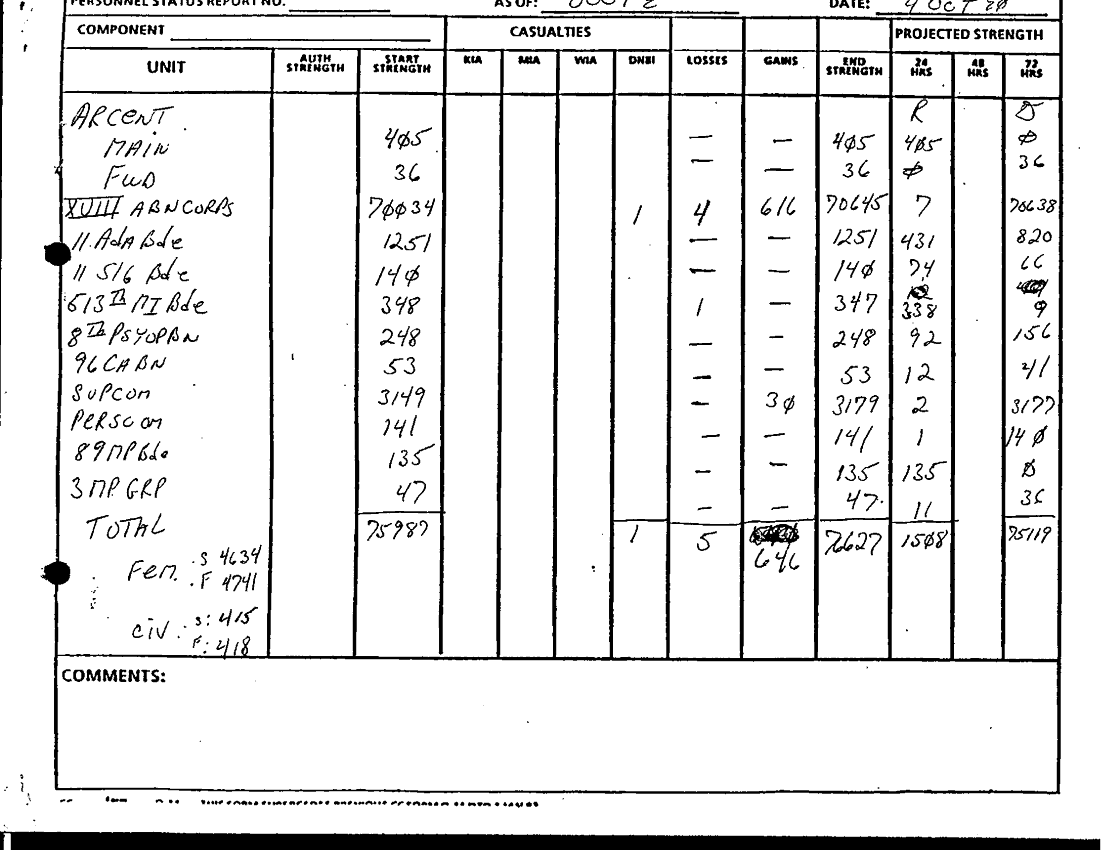 PERSONNEL STATUS REPORT NO. AS OF: DATE: 4 OCT
COMPONENT CASUALTIES PROJECTED STRENGTH
UNIT AUTH STRENGTH START STRENGTH KIA MIA WIA DNBI LOSSES GAINS END STRENGTH 24 HRS 48 HRS 72 HRS
ARCENT R D
MAIN 4φ5 — — 4φ5 4φ5 φ
FWD 36 — — 36 φ 36
XVIII ABN CORPS 7φφ34 1 4 616 70645 7 70638
11 AdA Bde 1251 — — 1251 431 820
11 SIG Bde 14φ — — 14φ 74 66
513th MI Bde 348 1 — 347 338 9
8th PSYOP BN 248 — — 248 92 156
96 CA BN 53 — — 53 12 41
SUPCOM 3149 — 3φ 3179 2 3177
PERSCOM 141 — — 141 1 14φ
89 MP Bde 135 — — 135 135 φ
3 MP GRP 47 — — 47 11 36
TOTAL 75987 1 5 646 76627 15φ8 75119
Fem. S 4634
F 4741
civ. S: 415
F: 418
COMMENTS: